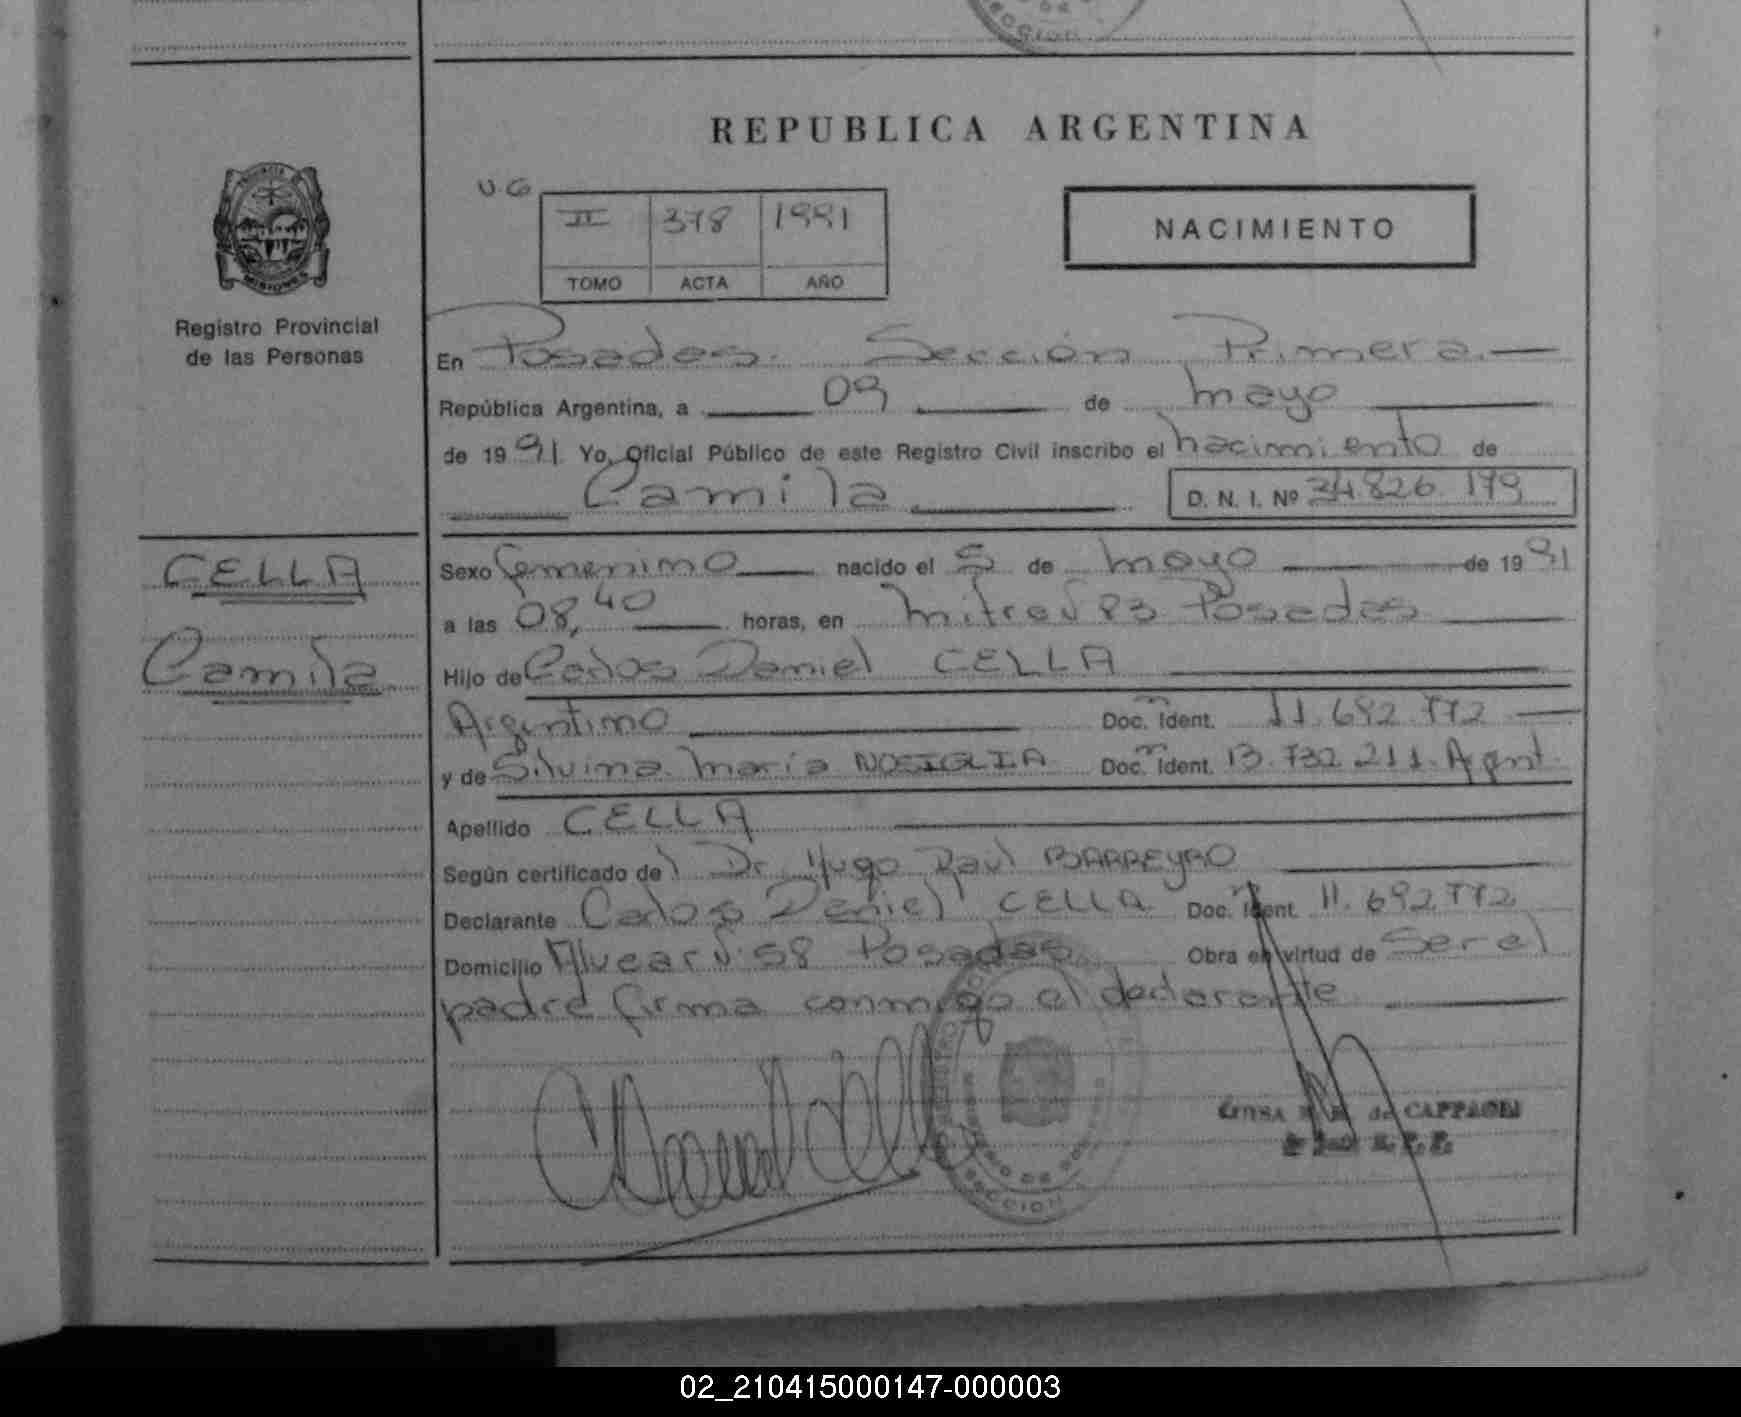 REPUBLICA ARGENTINA
U.G
II 378 1991
TOMO ACTA AÑO
NACIMIENTO
MISIONES
Registro Provincial
de las Personas
En Posadas. Sección Primera.
República Argentina, a 09 de mayo
de 1991 Yo, Oficial Público de este Registro Civil inscribo el nacimiento de
Camila D. N. I. Nº 34.826.179
CELLA
Camila
Sexo femenino nacido el 5 de mayo de 1991
a las 08,40 horas, en Mitre Nº 83 Posadas
Hijo de Carlos Daniel CELLA
Argentino Doc. Ident. 11.692.772
y de Silvina María NOSIGLIA Doc. Ident. 13.732.211. Argent.
Apellido CELLA
Según certificado del Dr. Hugo Raul BARREYRO
Declarante Carlos Daniel CELLA Doc. Ident. 11.692.772
Domicilio Alvear Nº 58 Posadas Obra en virtud de Ser el
padre firma conmigo el declarante
de CAPPAGLI
SECCION
02_210415000147-000003